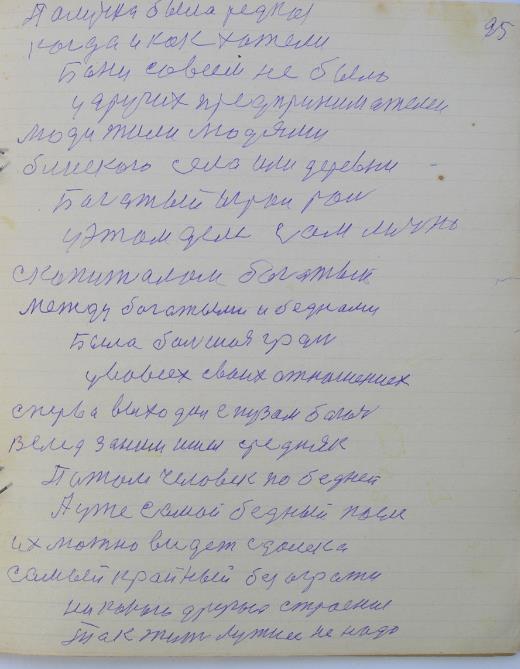 25
Палучка была редкой
когда и как хатели
Бани совсем не было
у других предпринимателей
люди жили людями
блиского села или деревни
Багатый играл рол
у этом деле сам лично
с капиталом багатый
между богатыми и бедными
Была балшая грань
у во всех своих отношениях
сперва выходил с пузам богач
вслед за ним шли средняк
Патом человек по бедней
А уже самой бедный после
их можно видет здалека
самый крайный без ограти
никакого другого строение
Так жит лужше не надо